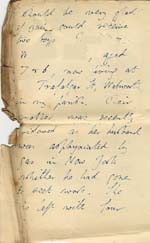 Should be very glad
if you could receive
two boys
W , aged
7 & 6, now living at
Trafalgar St, Walworth
in my parish. Their
mother was recently
widowed as her husband
was asphyxiated by
gas in New York
whither he had gone
to seek work. She
is left with four